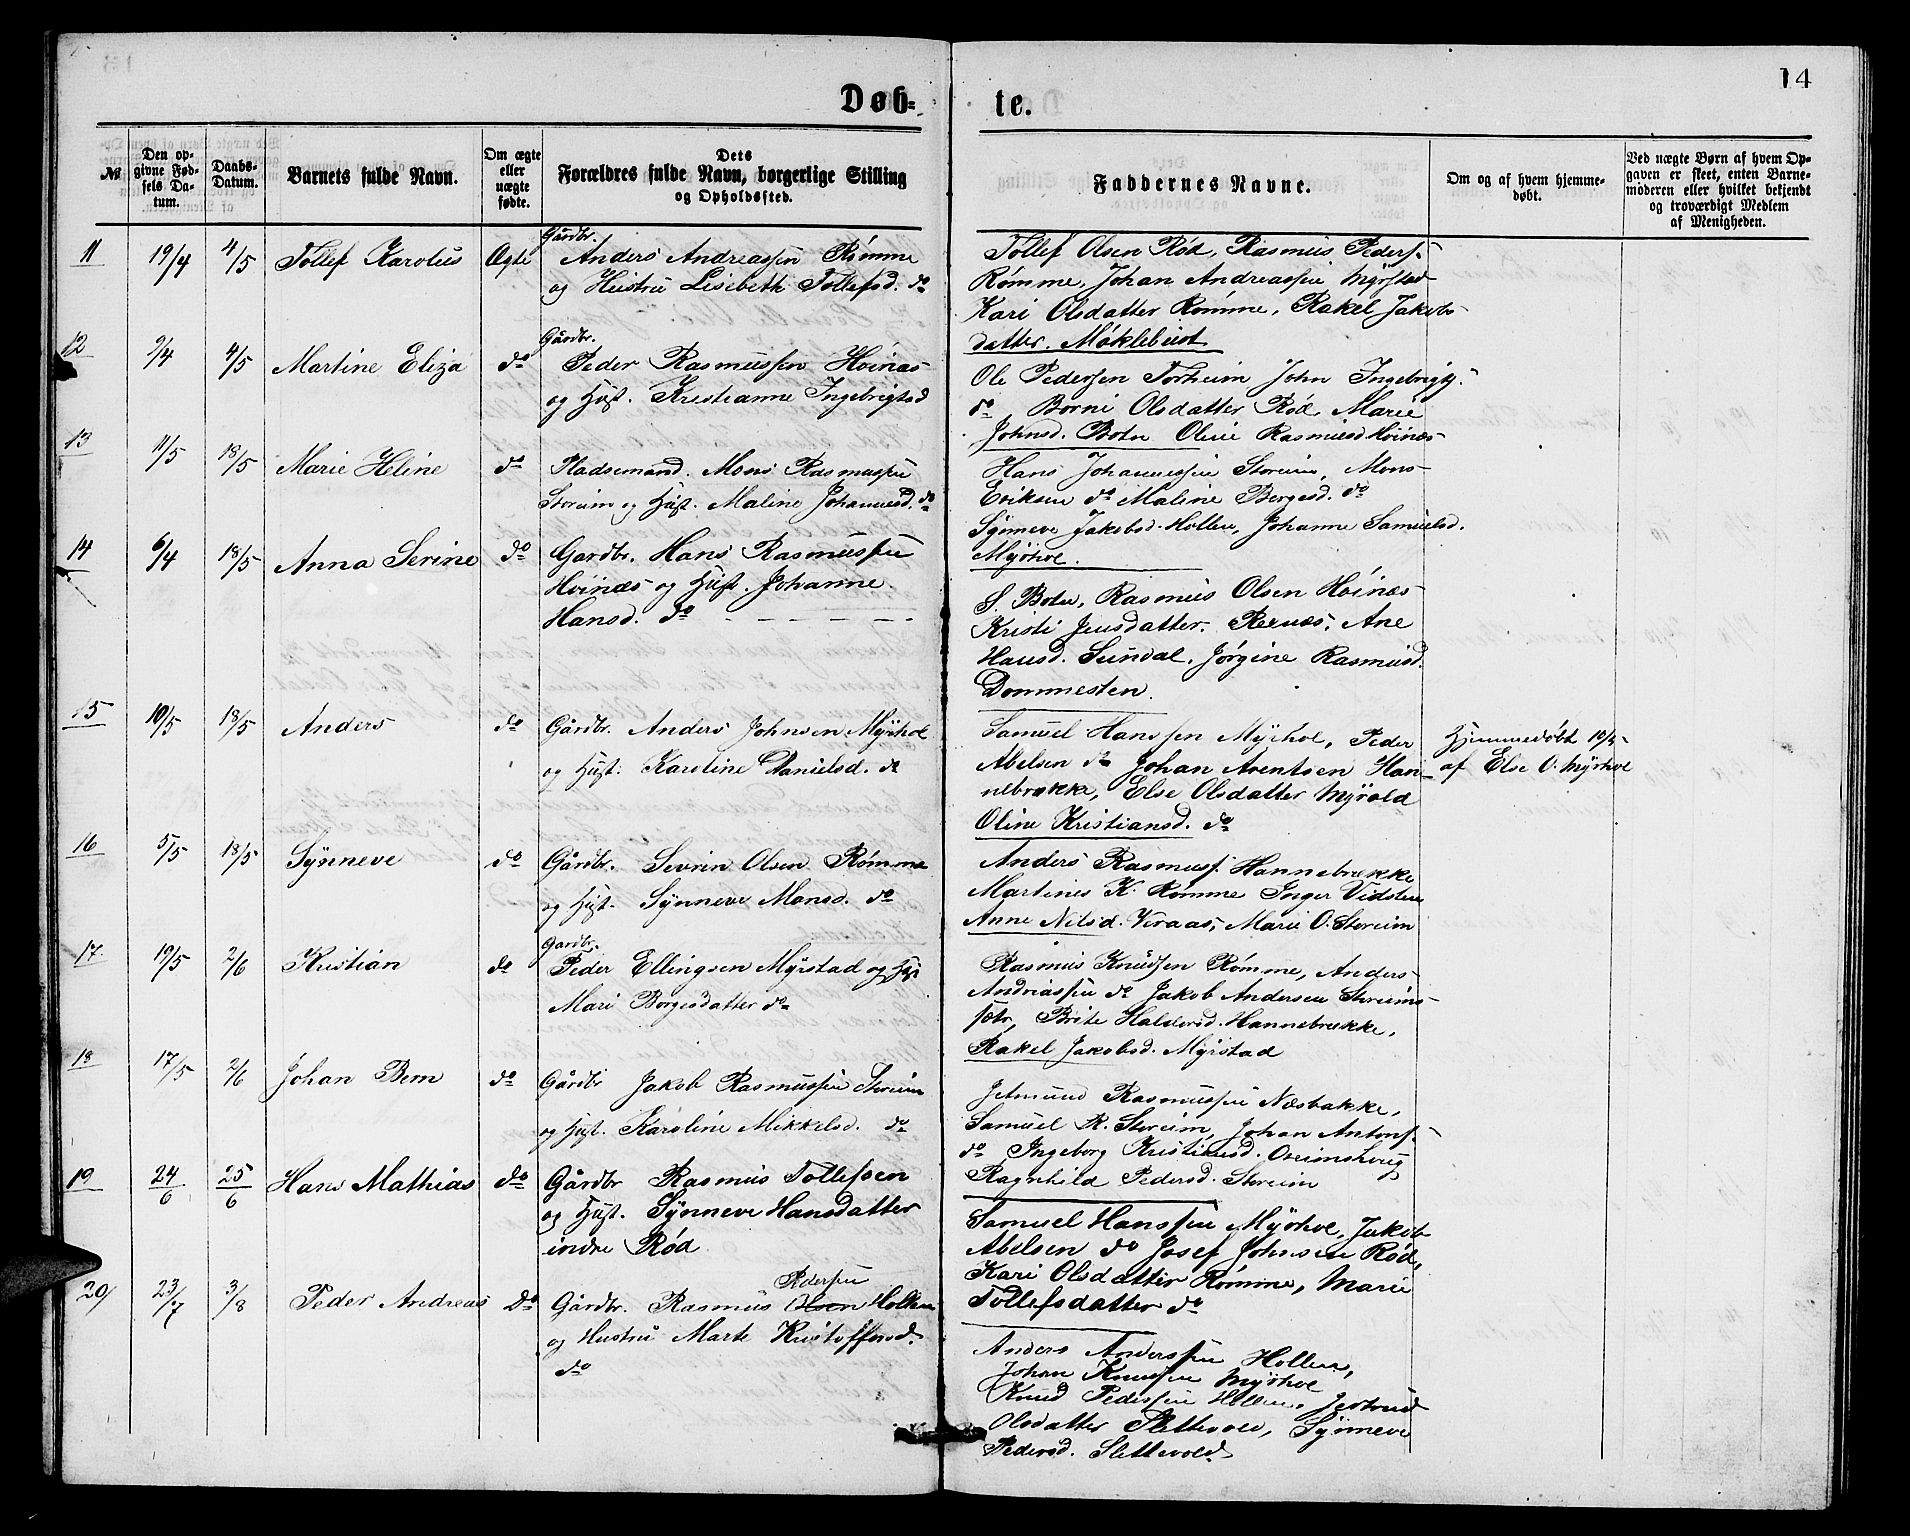 14
Døb-
te.
№
Den op-
givne Fød-
sels Da-
tum.
Daabs-
Datum.
Barnets fulde Navn.
Om ægte
eller
uægte
fødte.
Dets
Forældres fulde Navn, borgerlige Stilling
og Opholdssted.
Faddernes Navne.
Om og af hvem hjemme-
døbt.
Ved uægte Børn af hvem Op-
gaven er skeet, enten Barne-
moderen eller hvilket bekjendt
og troværdigt Medlem
af Menigheden.
11 19/4 4/5 Tollef Karolus Ægte Gårdbr. Anders Andreassen Rømme
og Hustru Lisebeth Tollefsd. do
Tollef Olsen Rød, Rasmus Peders-
Rømme, Johan Andreassen Myrstad
Kari Olsdatter Rømme, Rakel Jakobs-
datter. Møklebust
12 9/4 4/5 Martine Eliza do Gårdbr. Peder Rasmussen Hoinæs
og Hust. Kristianne Ingebrigtsd
Ole Pedersen Torheim John Ingebrigts.
do, Borni Olsdatter Rød, Marie
Johnsd. Botn Oline Rasmusd Hoinæs
13 11/5 18/5 Marie Heline do Pladsemand. Mons Rasmussen
Storeim og Hust. Maline Johannesd. do
Hans Johannessen Storeim, Mons
Eriksen do Maline Børgesd. do
Synneve Jakobsd. Hollen, Johanne Samuelsd.
Myrhol.
14 6/4 18/5 Anna Serine do Gardbr. Hans Rasmussen
Hoinæs og Hust. Johanne
Hansd. do
S. Botn, Rasmus Olsen Høinæs
Kristi Jensdatter. Ane
Hansd. Sundal, Jørgine Rasmusd.
Dommesten.
15 10/5 18/5 Anders do Gårdbr. Anders Johnsen Myrhol
og Hust. Karoline Danielsd. do
Samuel Hanssen Myrhol, Peder
Abelsen do Johan Arentsen Han-
nebrække, Else Olsdatter Myrold
Oline Kristiansd. do
Hjemmedøbt 10/5
af Else O. Myrhol
16 5/5 18/5 Synneve do Gårdbr. Sevrin Olsen Rømme
og Hust. Synneve Monsd. do
Anders Rasmuss. Hannebrække
Martines K. Rømme Inger Vidsten
Anne Nilsd. Veraas, Marie O. Storeim
17. 19/5 2/6 Kristian do Gardbr. Peder Ellingsen Myrstad og Hst
Mari Børgesdatter do
Rasmus Knudsen Rømme, Anders
Andreassen do Jakob Andersen Storeims-
sætr, Brite Haldorsd. Hannebrække,
Rakel Jakobsd. Myrstad
18 17/5 2/6 Johan Bern do Gårdbr Jakob Rasmussen Storeim
og Hust. Karoline Mikkelsd. do
Jetmund Rasmussen Næsbakke,
Samuel R. Storeim, Johan Antons-
do Ingeborg
Ragnhild Pedersd. Storeim
19 24/6 25/6 Hans Mathias do Gårdbr Rasmus Tollefsen
og Hust. Synneve Hansdatter
indre Rød
Samuel Hanssen Myrhol, Jakob
Abelsen do Josef Johnsen Rød,
Kari Olsdatter Rømme, Marie
Tollefsdatter do
20 23/7 3/8 Peder Andreas do Gårdbr. Rasmus Pedersen Hollen
og Hustru Marte Kristoffersd.
do
Anders Anderssen Hollen,
Johan Knudsen Myrhol
Knud Pederssen Hollen, Jertrud
Olsdatter Slettevold, Synneve
Pedersd. Slettevold